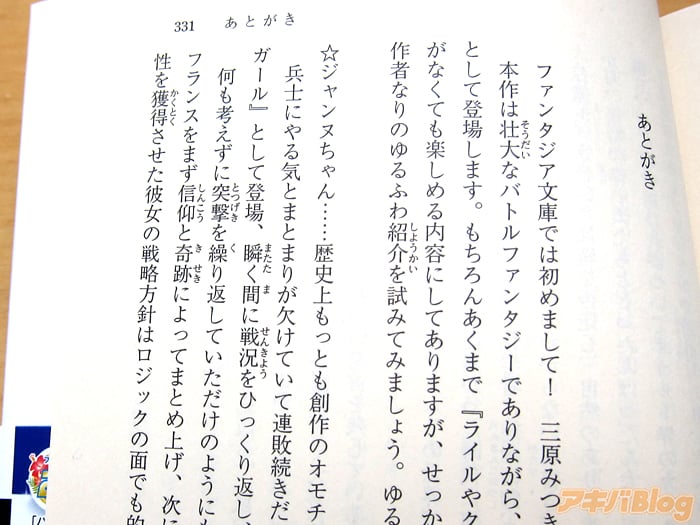 331 あとがき
あとがき
ファンタジア文庫では初めまして！ 三原みつき
本作は壮大なバトルファンタジーでありながら、
として登場します。もちろんあくまで『ライルやク
がなくても楽しめる内容にしてありますが、せっか
作者なりのゆるふわ紹介を試みてみましょう。ゆる
☆ジャンヌちゃん……歴史上もっとも創作のオモチ
兵士にやる気とまとまりが欠けていて連敗続きだ
ガール』として登場、瞬く間に戦況をひっくり返し、
何も考えずに突撃を繰り返していただけのようにも
フランスをまず信仰と奇跡によってまとめ上げ、次に
性を獲得させた彼女の戦略方針はロジックの面でも的
アキバBlog